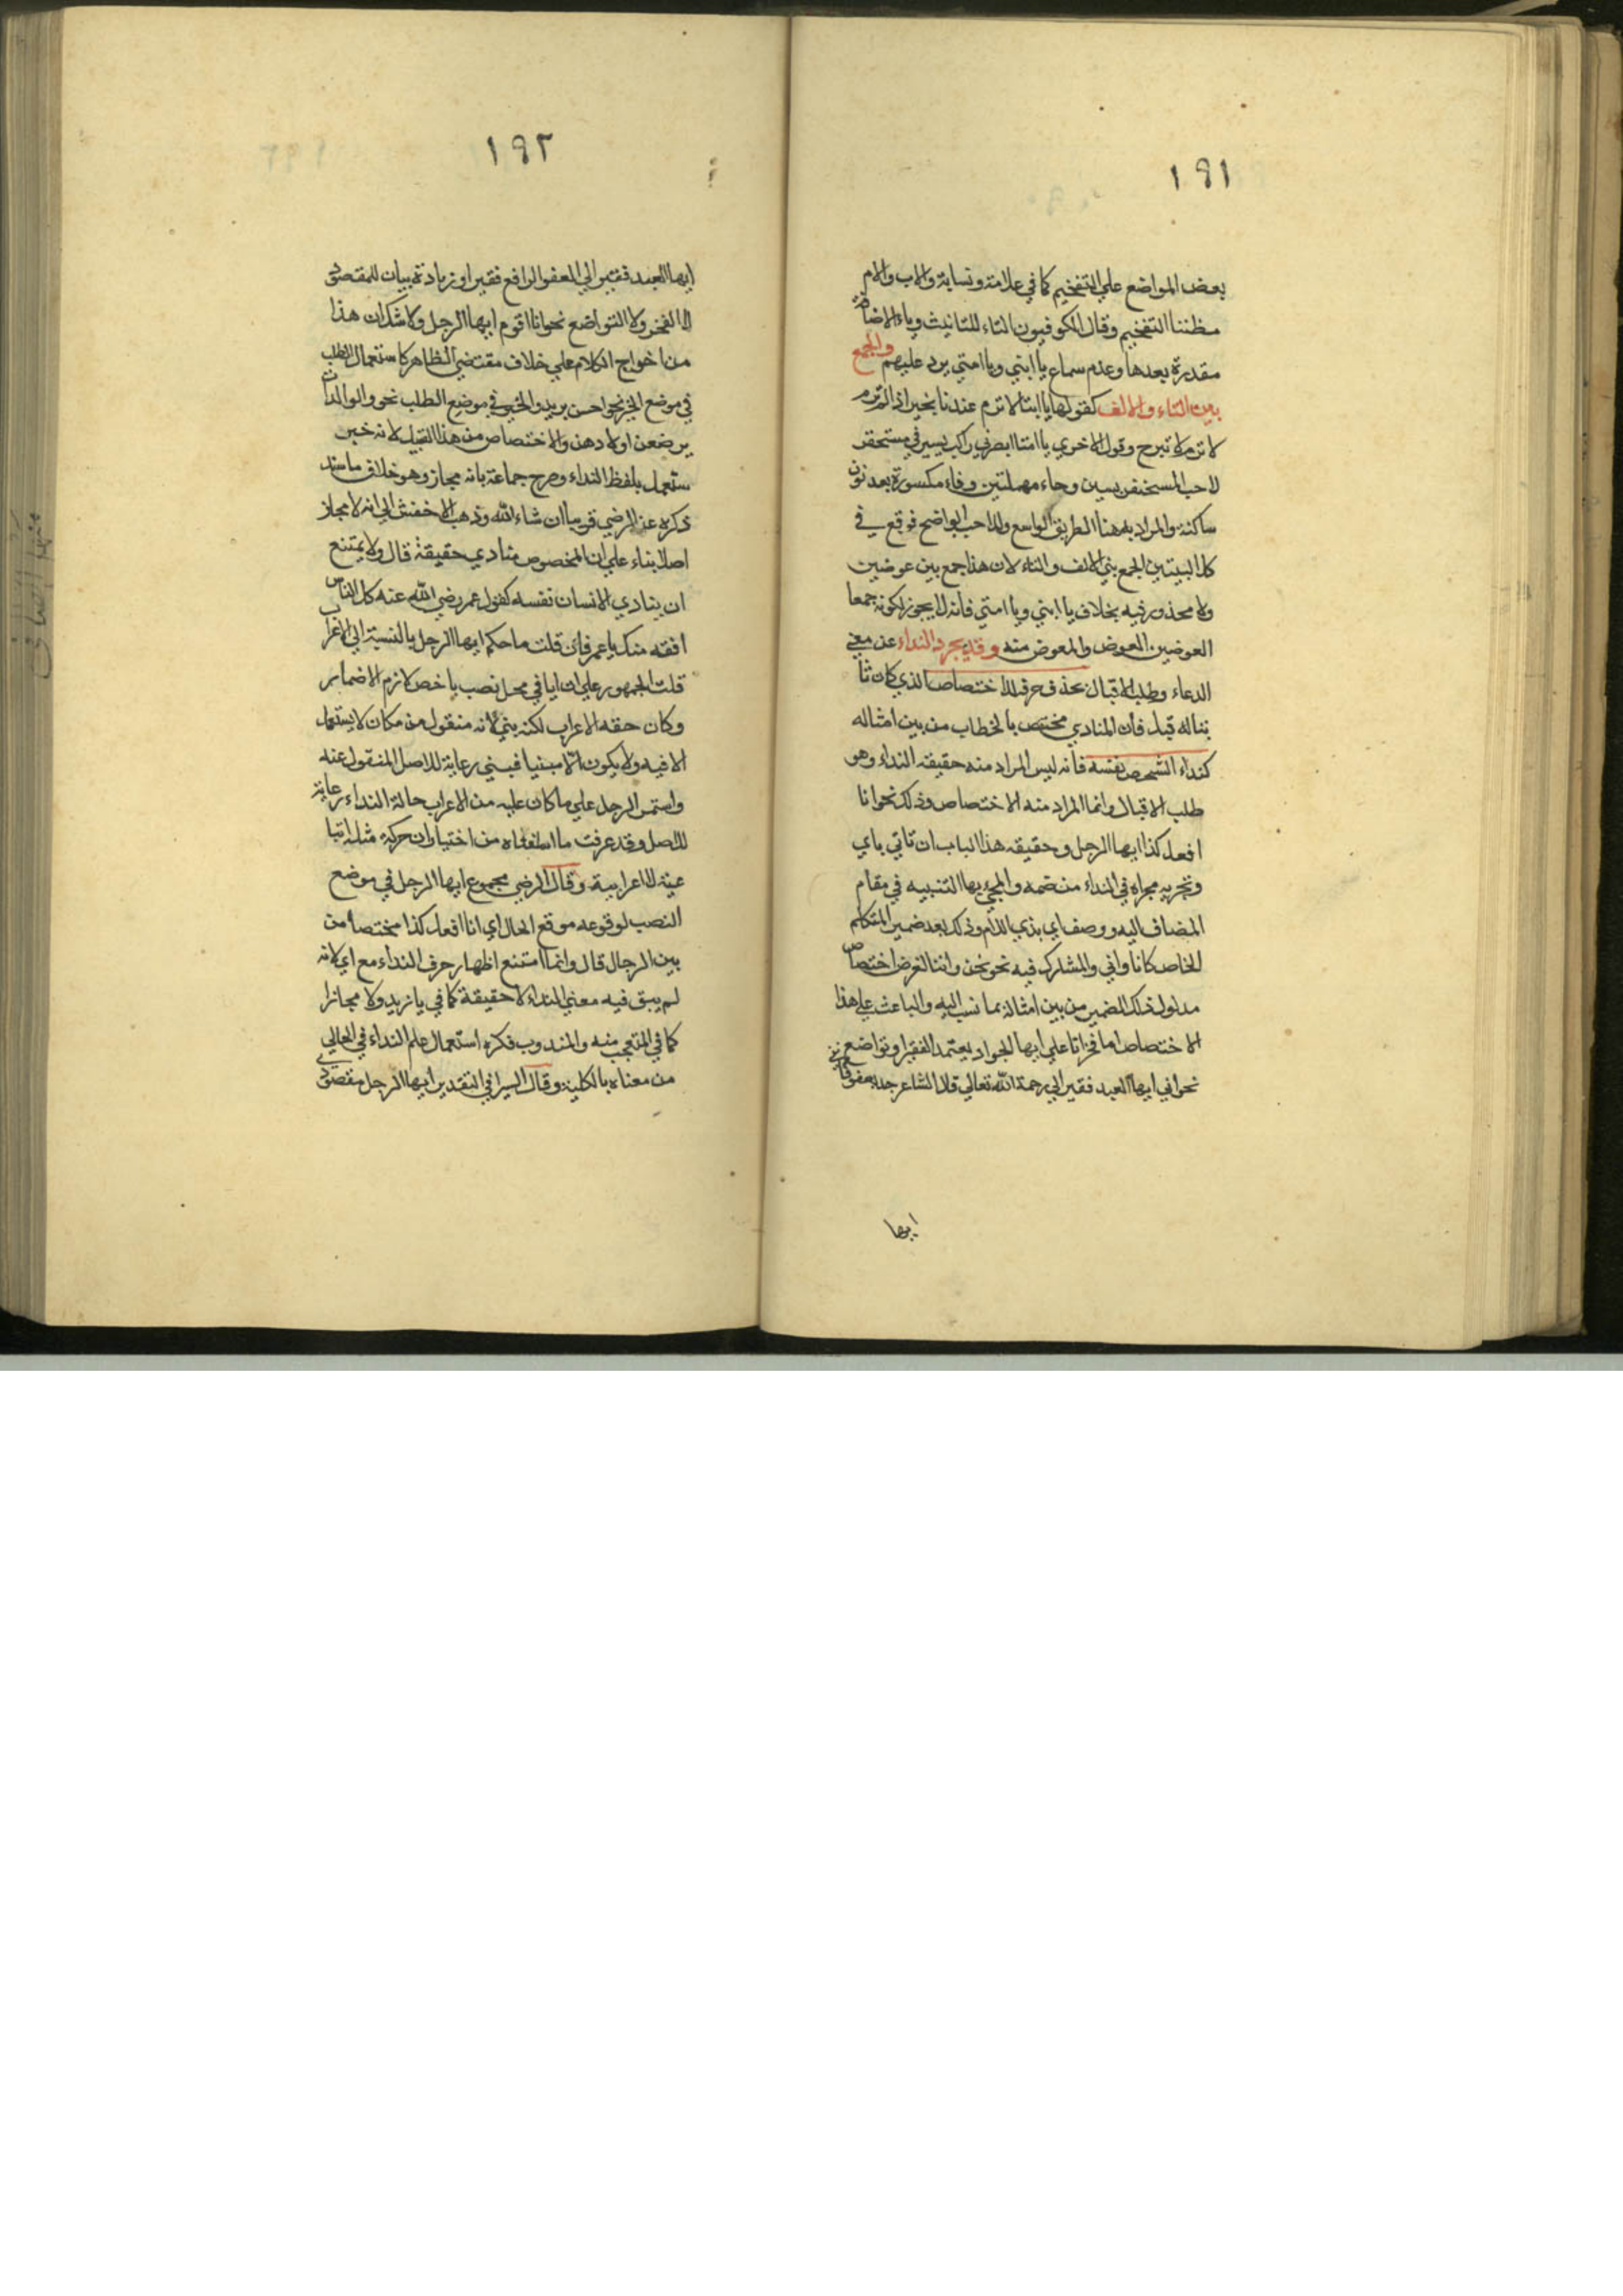 ١٩١
بعض المواضع علي التفخيم كما في علامة ونسابة والاب والام
مظنتا التفخيم وقال الكوفيون التاء للتانيث وياء الاضافة
مقدرة بعدها وعدم سماع يا ابتي ويا امتي يرد عليهم والجمع
بين التاء والالف كقولها يا ابتا لا ترم عندنا بخير اذا لم ترم
لا ترم لا تبرح وقول الاخري يا امتا ابصرني راكب يسير في مستحفر
لاحب المسحنفر بسين وحاء مهملتين وفاء مكسورة بعد نون
ساكنة والمراد به هنا الطريق الواسع واللاحب الواضح فوقع في
كل البيتين الجمع بين الالف والتاء لان هذا جمع بين عوضين
ولا محذور فيه بخلاف يا ابتي ويا امتي فانه لا يجوز لكونه جمعا
العوضين العوض والمعوض منه وقد يجرد النداء عن معني
الدعاء وطلب الاقبال بحذف حرفه للاختصاص الذي كان ثا
بتا له قبل فان المنادي مختص بالخطاب من بين امثاله
كنداء الشخص نفسه فانه ليس المراد منه حقيقة النداء وهو
طلب الاقبال وانما المراد منه الاختصاص وذلك نحو انا
افعل كذا ايها الرجل وحقيقة هذا الباب ان تاتي باي
وتجريه مجراه في النداء من ضمه والمجيء بها التنبيه في مقام
المضاف اليه ووصف اي بذي اللام وذلك بعد ضمير المتكلم
الخاص كانا واني والمشارك فيه نحو نحن واننا لغرض اختصاص
مدلول ذلك الضمير من بين امثاله بما نسب اليه والباعث علي هذا
الاختصاص اما فخر انا علي ايها الجواد يعتمد الفقير او تواضع
نحو اني ايها العبد فقير الي رحمة الله تعالي قال الشاعر جد بعفو فا
ايها
١٩٢
ايها العبد فقير الي العفو الرافع فقير او زيادة بيان للمقصود
لا الفخر ولا التواضع نحو انا اقوم ايها الرجل ولا شك ان هذا
من اخراج الكلام علي خلاف مقتضي الظاهر كاستعمال الطلب
في موضع الخبر نحو احسن بزيد والخبر في موضع الطلب نحو والوالدات
يرضعن اولادهن والاختصاص من هذا القبيل لانه خبر
ستعمل بلفظ النداء وصرح جماعة بانه مجاز وهو خلاف ما سنذ
ذكره عن الرضي قريبا ان شاء الله وذهب الاخفش الي انه لا مجاز
اصلا بناء علي ان المخصوص منادي حقيقة قال ولا يمتنع
ان ينادي الانسان نفسه كقول عمر رضي الله عنه كل الناس
افقه منك يا عمر فان قلت ما حكم ايها الرجل بالنسبة الي الاعراب
قلت الجمهور علي ان ايا في محل نصب باخص لازم الاضمار
وكان حقه الاعراب لكنه بني لانه منقول من مكان لا يستعمل
الا فيه ولا يكون الا مبنيا فبني رعاية للاصل المنقول عنه
واستمر الرجل علي ما كان عليه من الاعراب حالة النداء رعاية
للاصل وقد عرفت ما اسلفناه من اختيار ان حركة مثله اتبا
عية لا اعرابية وقال الرضي مجموع ايها الرجل في موضع
النصب لوقوعه موقع الحال اي انا افعل كذا مختصا من
بين الرجال قال وانما امتنع اظهار حرف النداء مع اي لانه
لم يبق فيه معني النداء لا حقيقة كما في يا زيد ولا مجازا
كما في المتعجب منه والمندوب فكره استعمال علم النداء في الخالي
من معناه بالكلية وقال السيرافي التقدير ايها الرجل مقصود